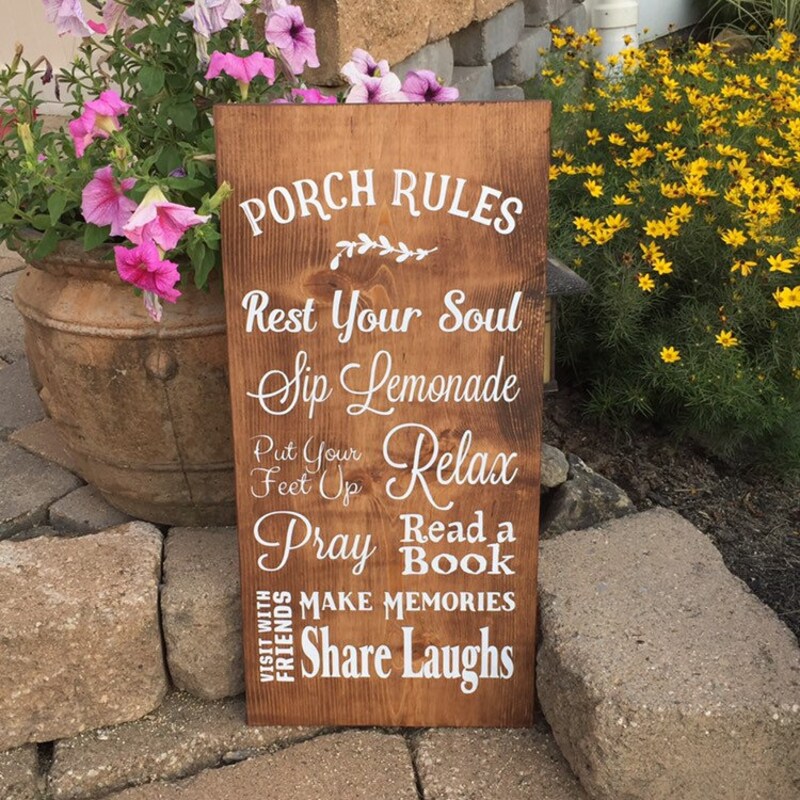 PORCH RULES
Rest Your Soul
Sip Lemonade
Put Your
Feet Up
Relax
Pray
Read a
Book
VISIT WITH
FRIENDS
MAKE MEMORIES
Share Laughs